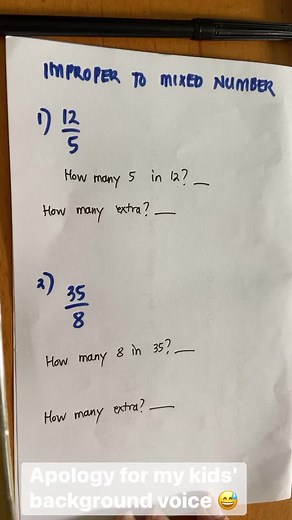 IMPROPER TO MIXED NUMBER
1) 12
5
How many 5 in 12? __
How many extra? __
2) 35
8
How many 8 in 35? __
How many extra? __
Apology for my kids'
background voice 😅